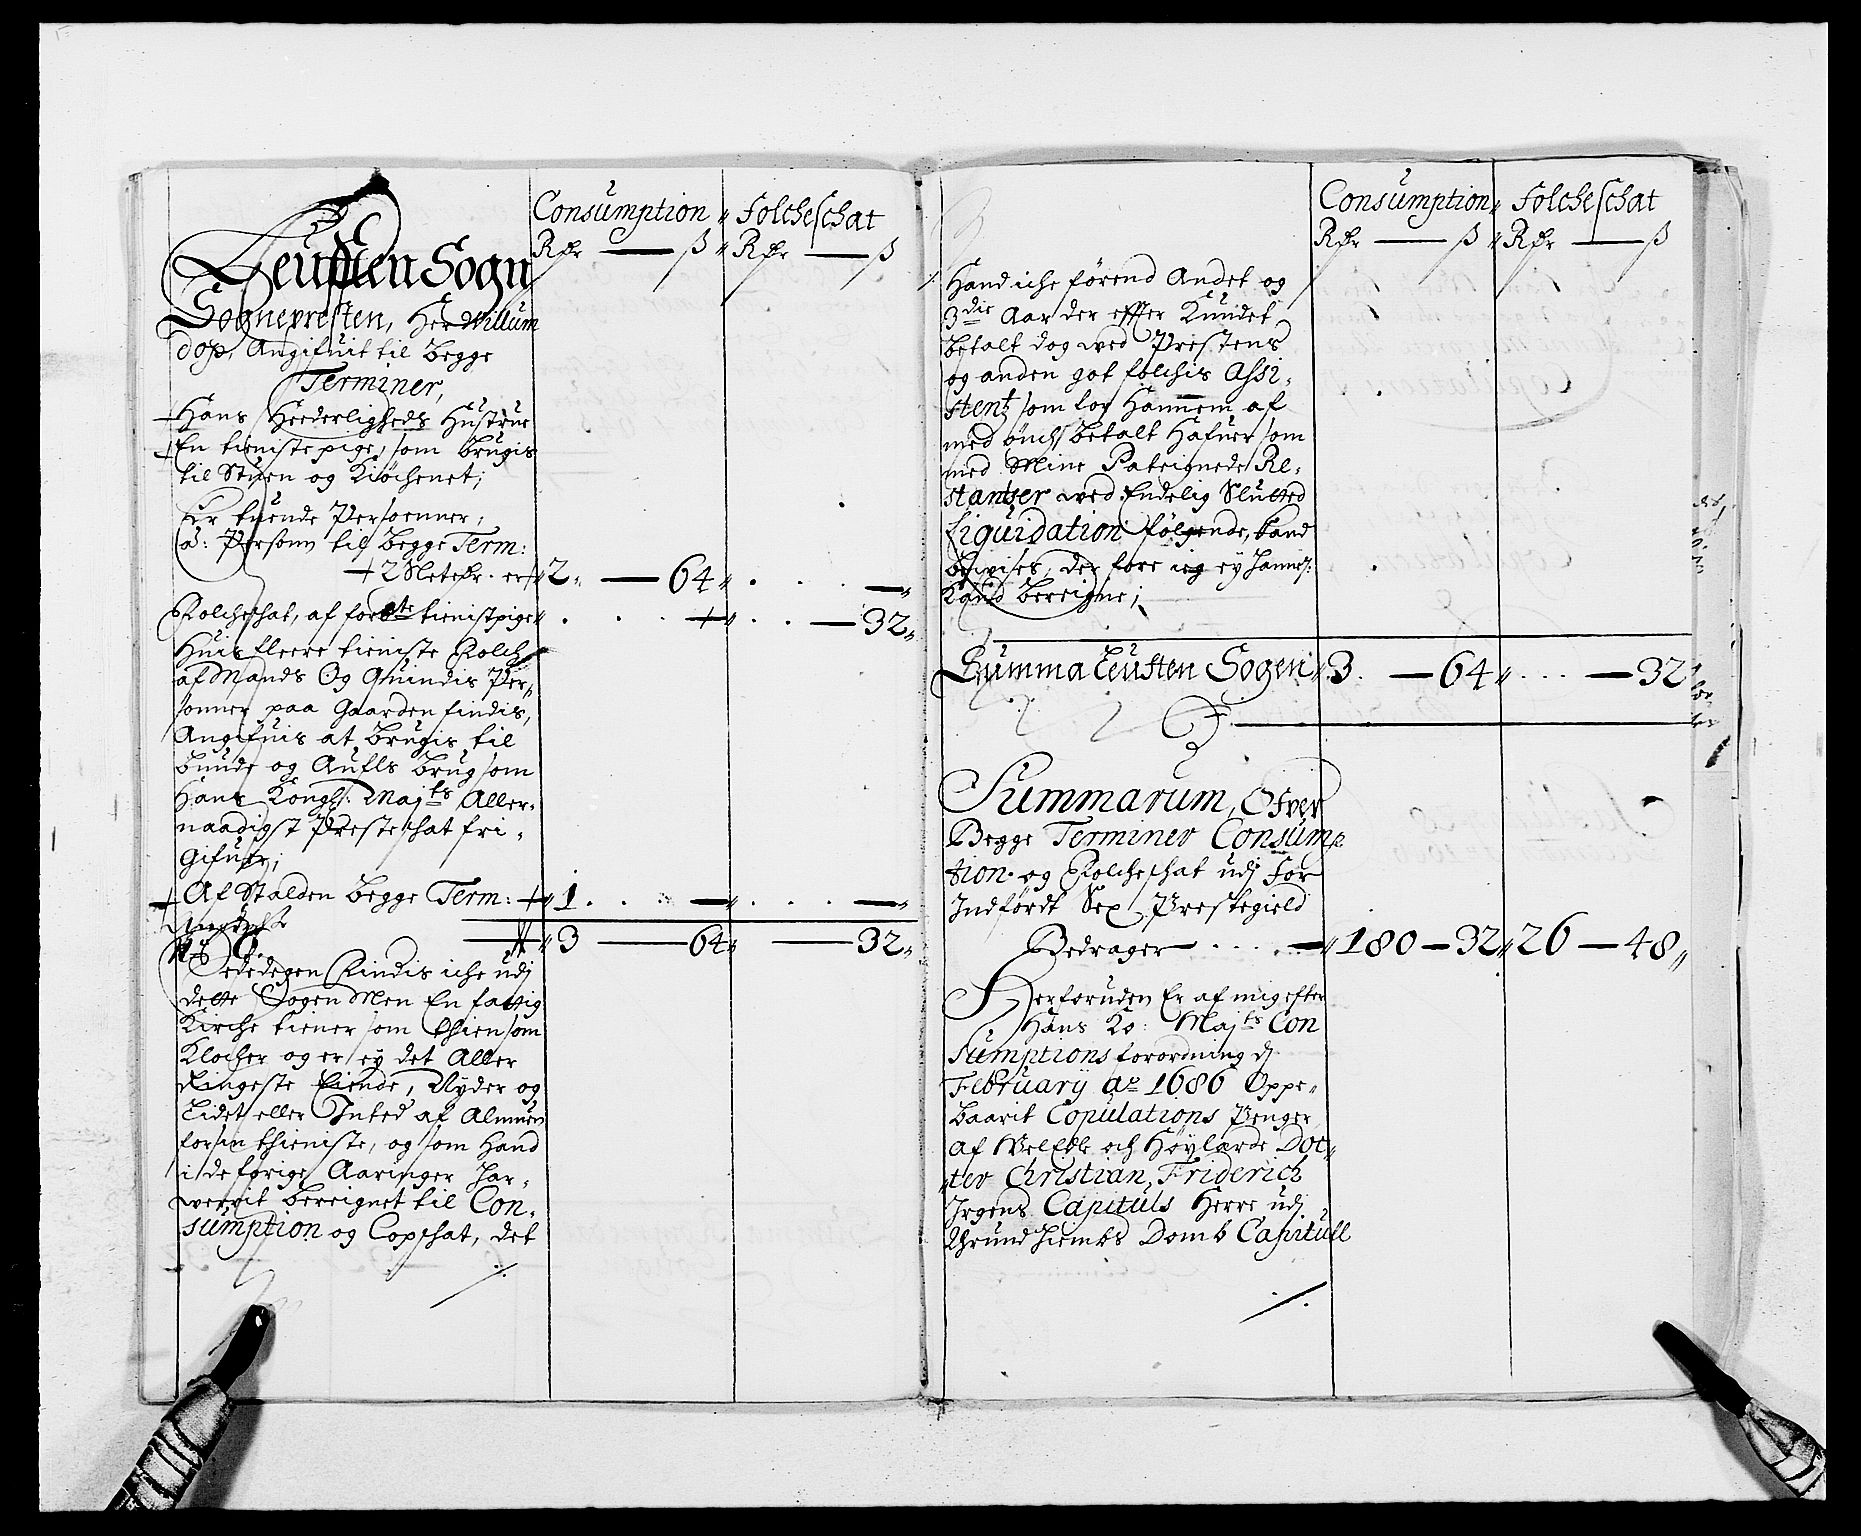 Consumption „ Folcheschat
Rdr — ß „ Rdr — ß
Leusten Sogn
Sognepresten, Her Willum
dop, Angifuit til Begge
Terminer,
Hans Hæderligheds Hustrue
En tieniste pige, som brugis
til Stuen og Kiøchenet;
Er tuende Persoenner,
a: Personn til Begge Term:
2 Slettdr. er „ 2 „ — 64 „ . . . — „
Folcheschat, af forste tienistpige „ . . . „ . . — 32 „
Huis fleere tieniste Folch
af Mands Og Quindis Per„
sonner paa Gaarden findis,
Angifuis at brugis til
bunde og Aufls brug som
Hans Kongl: Majts Aller„
naadigst Presteschat fri„
Gifuer;
Af Stalden Begge Term: „ 1 . . . — „ . . . — „
„ 3 — 64 „ — 32 „
Sædedegen Findis iche udj
dette Sogen Men En fattig
Kirche tiener som thien som
Klocher og er ey det Aller
Ringeste Eiende, Nyder og
Lidet eller Inted af Almuen
for sin thieniste, og som Hand
i de forige Aaringer har„
verrit bereignet til Con„
sumption og Copschat, det
./.
Consumption „ Folcheschat
Rdr — ß „ Rdr — ß
Hand iche førend Andet og
3die Aar der effter Kundet
betalt dog ved Prestens
og anden got folchis Assi„
stentz som lov Hannem af
med önch betalt Hafuer som
med Mine Re„
stantzer ved Endelig Slutted
Liquidation følgende, kand
bevises, der fore ieg ey hannem
Kand bereigne;
Summa Leusten Sogen „ 3 . — 64 „ . . . — 32
Summarum, Ofver
Begge Terminer Consump
tion og Folcheschat udj For
Indførdt Sex Prestegield
Bedrager . . . . — „ 180 — 32 „ 26 — 48 „
Herforuden Er af mig efter
Hans Ko: Majts Con
sumptions forordning dj
February ao 1686 Oppe„
baarit Copulations Penger
af Velædle och Høylærde Doc„
„ter Christian, Friderich
Jrgens Capituls Herre udj
Thrundhiembs Domb Capitull
./.